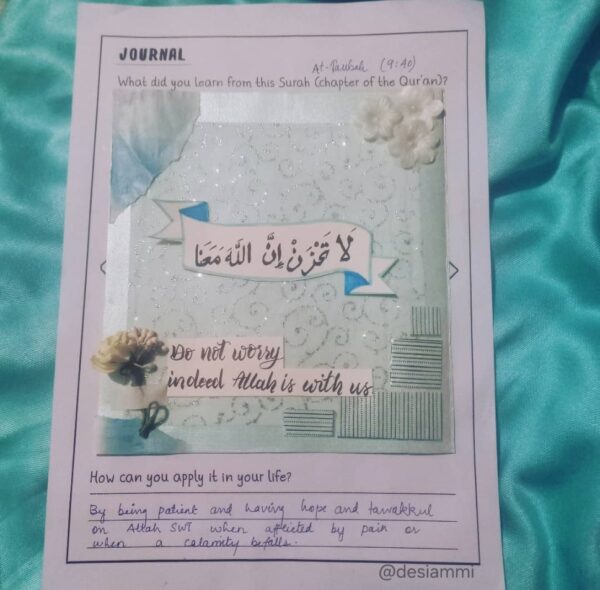 JOURNAL
At-Taubah (9:40)
What did you learn from this Surah (chapter of the Qur'an)?
لَا تَحْزَنْ إِنَّ اللَّهَ مَعَنَا
Do not worry
indeed Allah is with us
How can you apply it in your life?
By being patient and having hope and tawakkul
on Allah SWT when afflicted by pain or
when a calamity befalls.
@desiammi